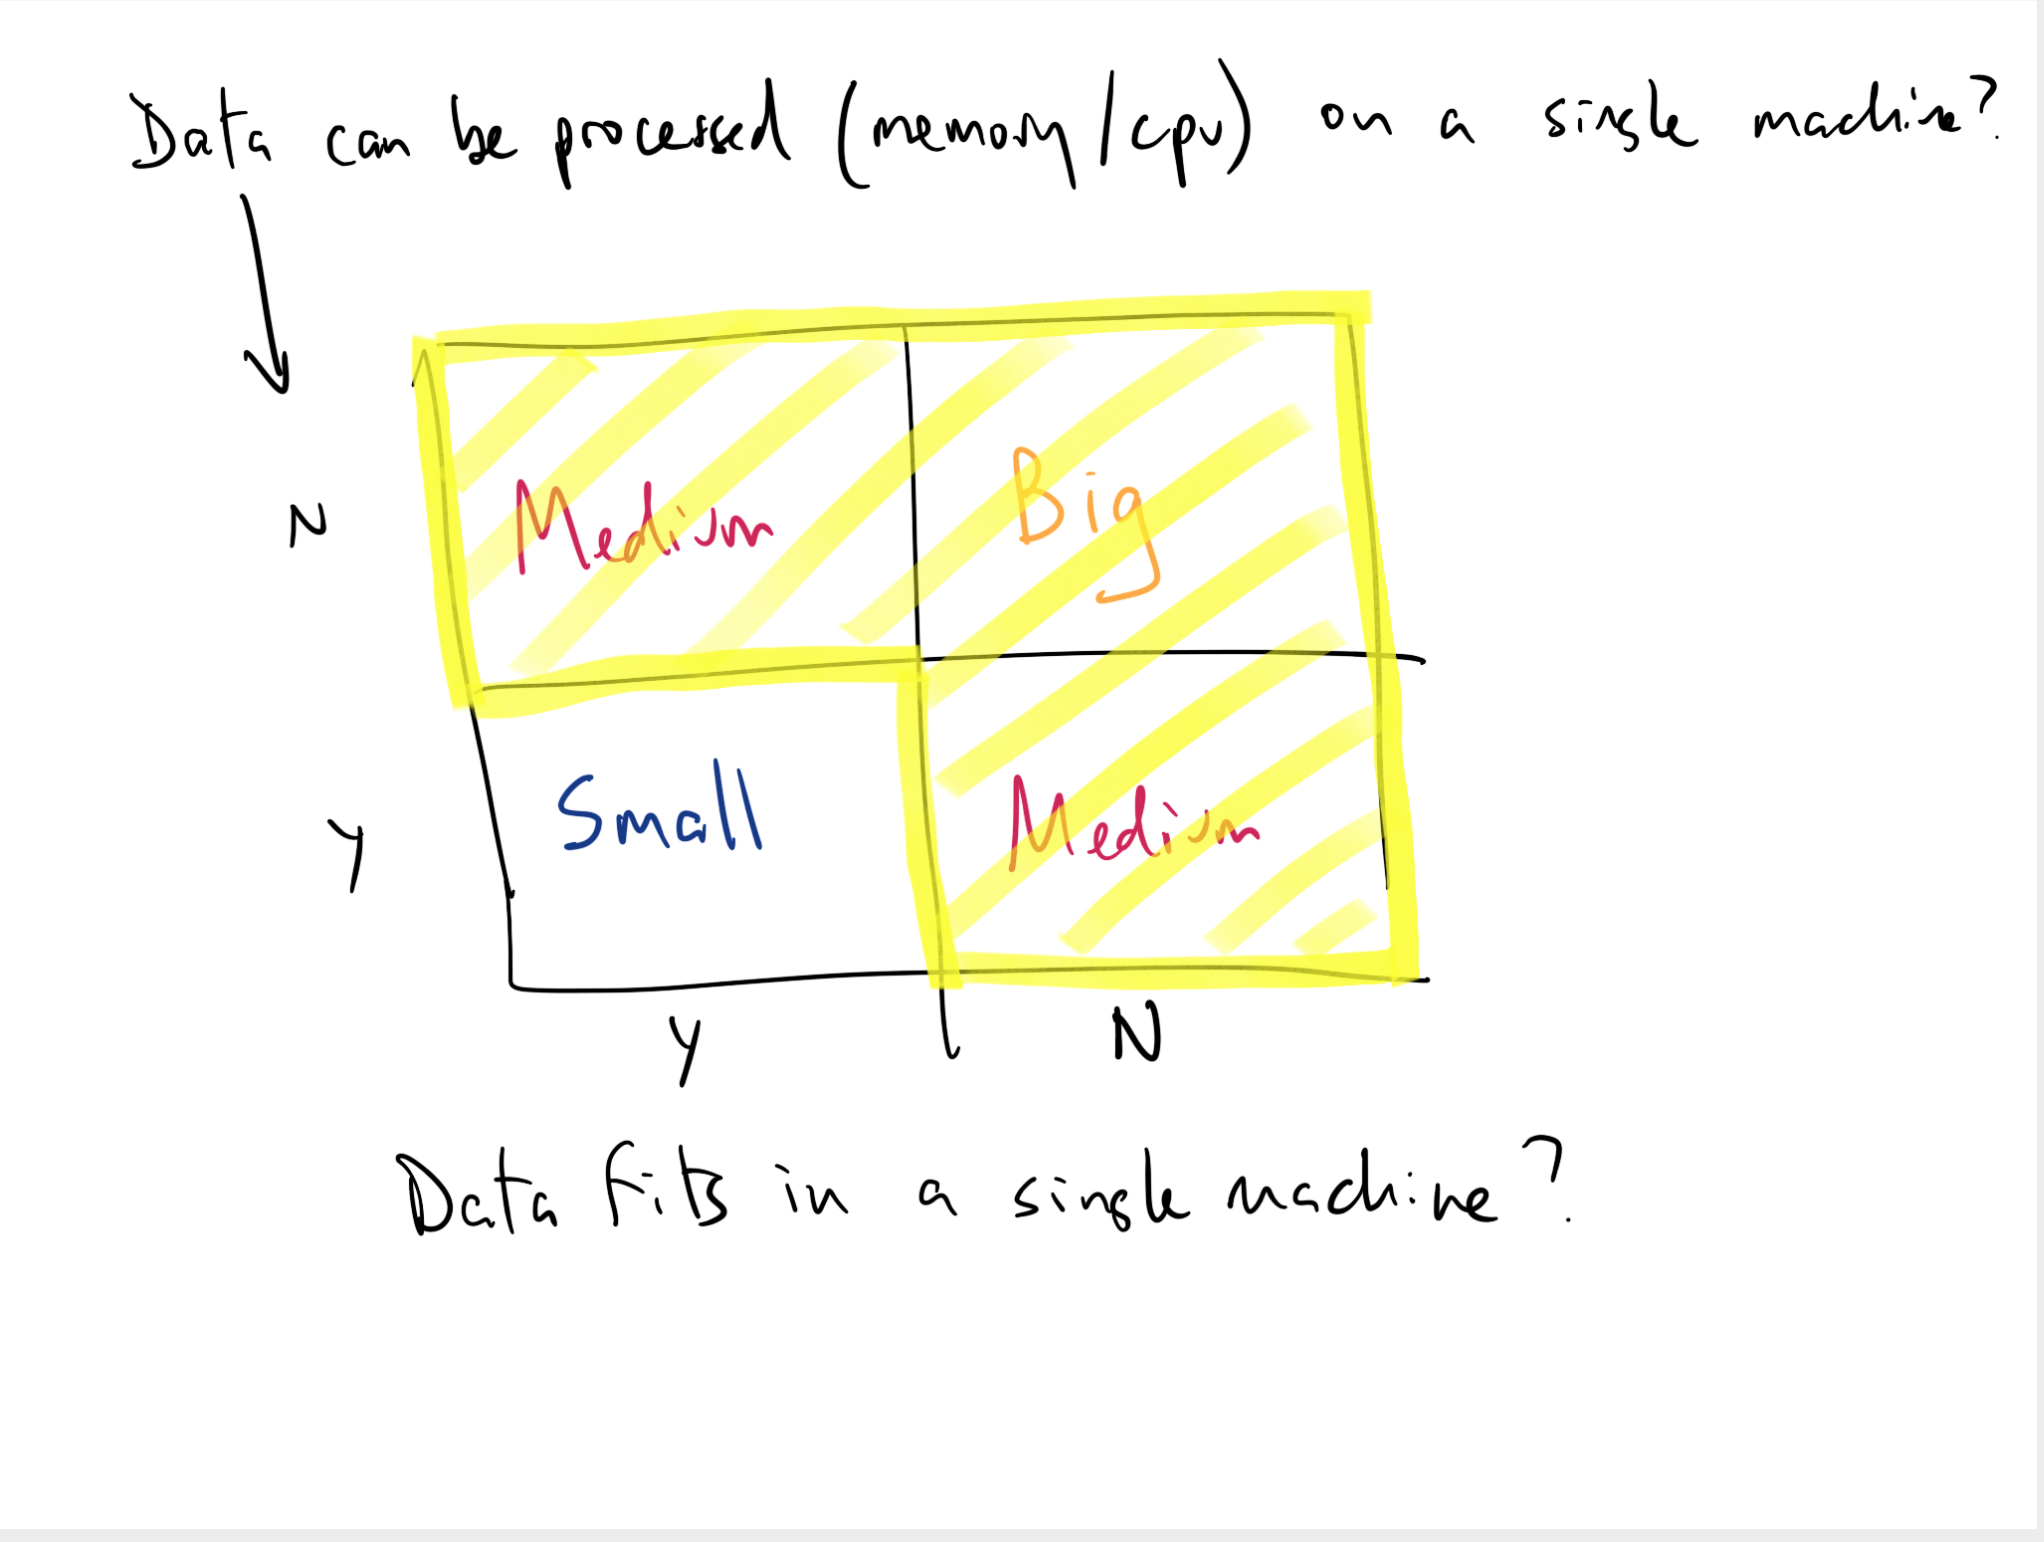 Data can be processed (memory/cpu) on a single machine?
N Medium Big
Y Small Medium
Y N
Data fits in a single machine?